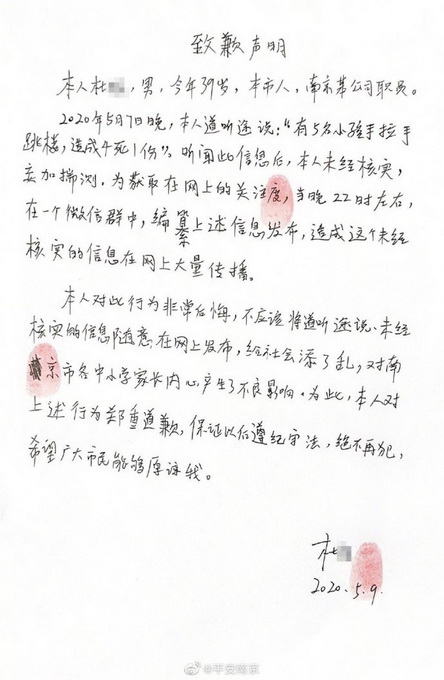 致歉声明
本人杜，男，今年39岁，本市人，南京某公司职员。
2020年5月7日晚，本人道听途说："有5名小孩手拉手
跳楼，造成4死1伤"。听闻此信息后，本人未经核实，
妄加揣测。为获取在网上的关注度，当晚22时左右，
在一个微信群中，编纂上述信息发布，造成这个未经
核实的信息在网上大量传播。
本人对此行为非常后悔，不应该将道听途说、未经
核实的信息随意在网上发布，给社会添了乱，对南
京市各中小学家长内心产生了不良影响。为此，本人对
上述行为郑重道歉，保证以后遵纪守法，绝不再犯，
希望广大市民能够原谅我。
杜
2020.5.9.
@平安南京